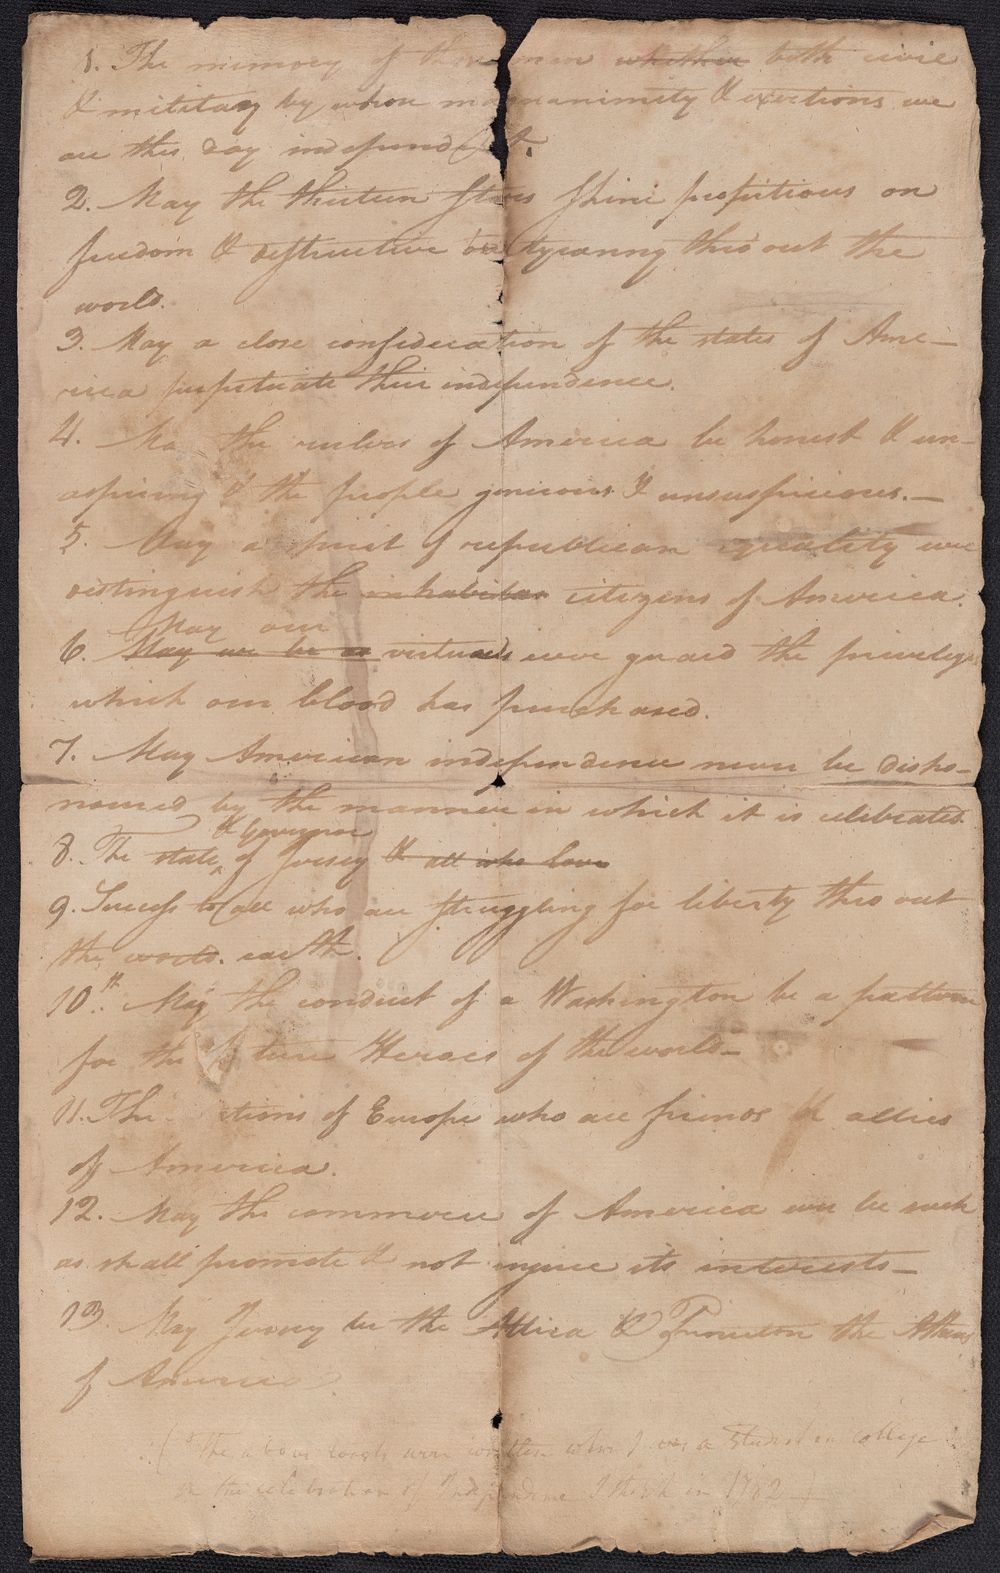 1. The memory of those men whether both civil
& military by whose magnanimity & exertions we
are this day independent.
2. May the thirteen Stars Shine propitious on
freedom & destructive to tyranny thro out the
world.
3. May a close confederation of the states of Ame-
rica perpetuate their independence.
4. Ma the rulers of America be honest & un-
aspiring & the people generous & unsuspicious.—
5. May a spirit of republican equality ever
distinguish the inhabitan citizens of America.
May our
6. May we be as virtue ever guard the privileges
which our blood has purchased.
7. May American independence never be disho-
noured by the manner in which it is celebrated
& Governor
8. The state of Jersey & all who love
9. Success to all who are struggling for liberty thro out
the world. earth.
10th. May the conduct of a Washington be a pattern
for the future Heroes of the world—
11. The ations of Europe who are friends & allies
of America.
12. May the commerce of America ever be such
as shall promote & not injure its interests—
13. May Jersey be the Attica & Princeton the Athens
of America
(The above toasts were written when I was a student in College
on the celebration of Independence I think in 1782—)